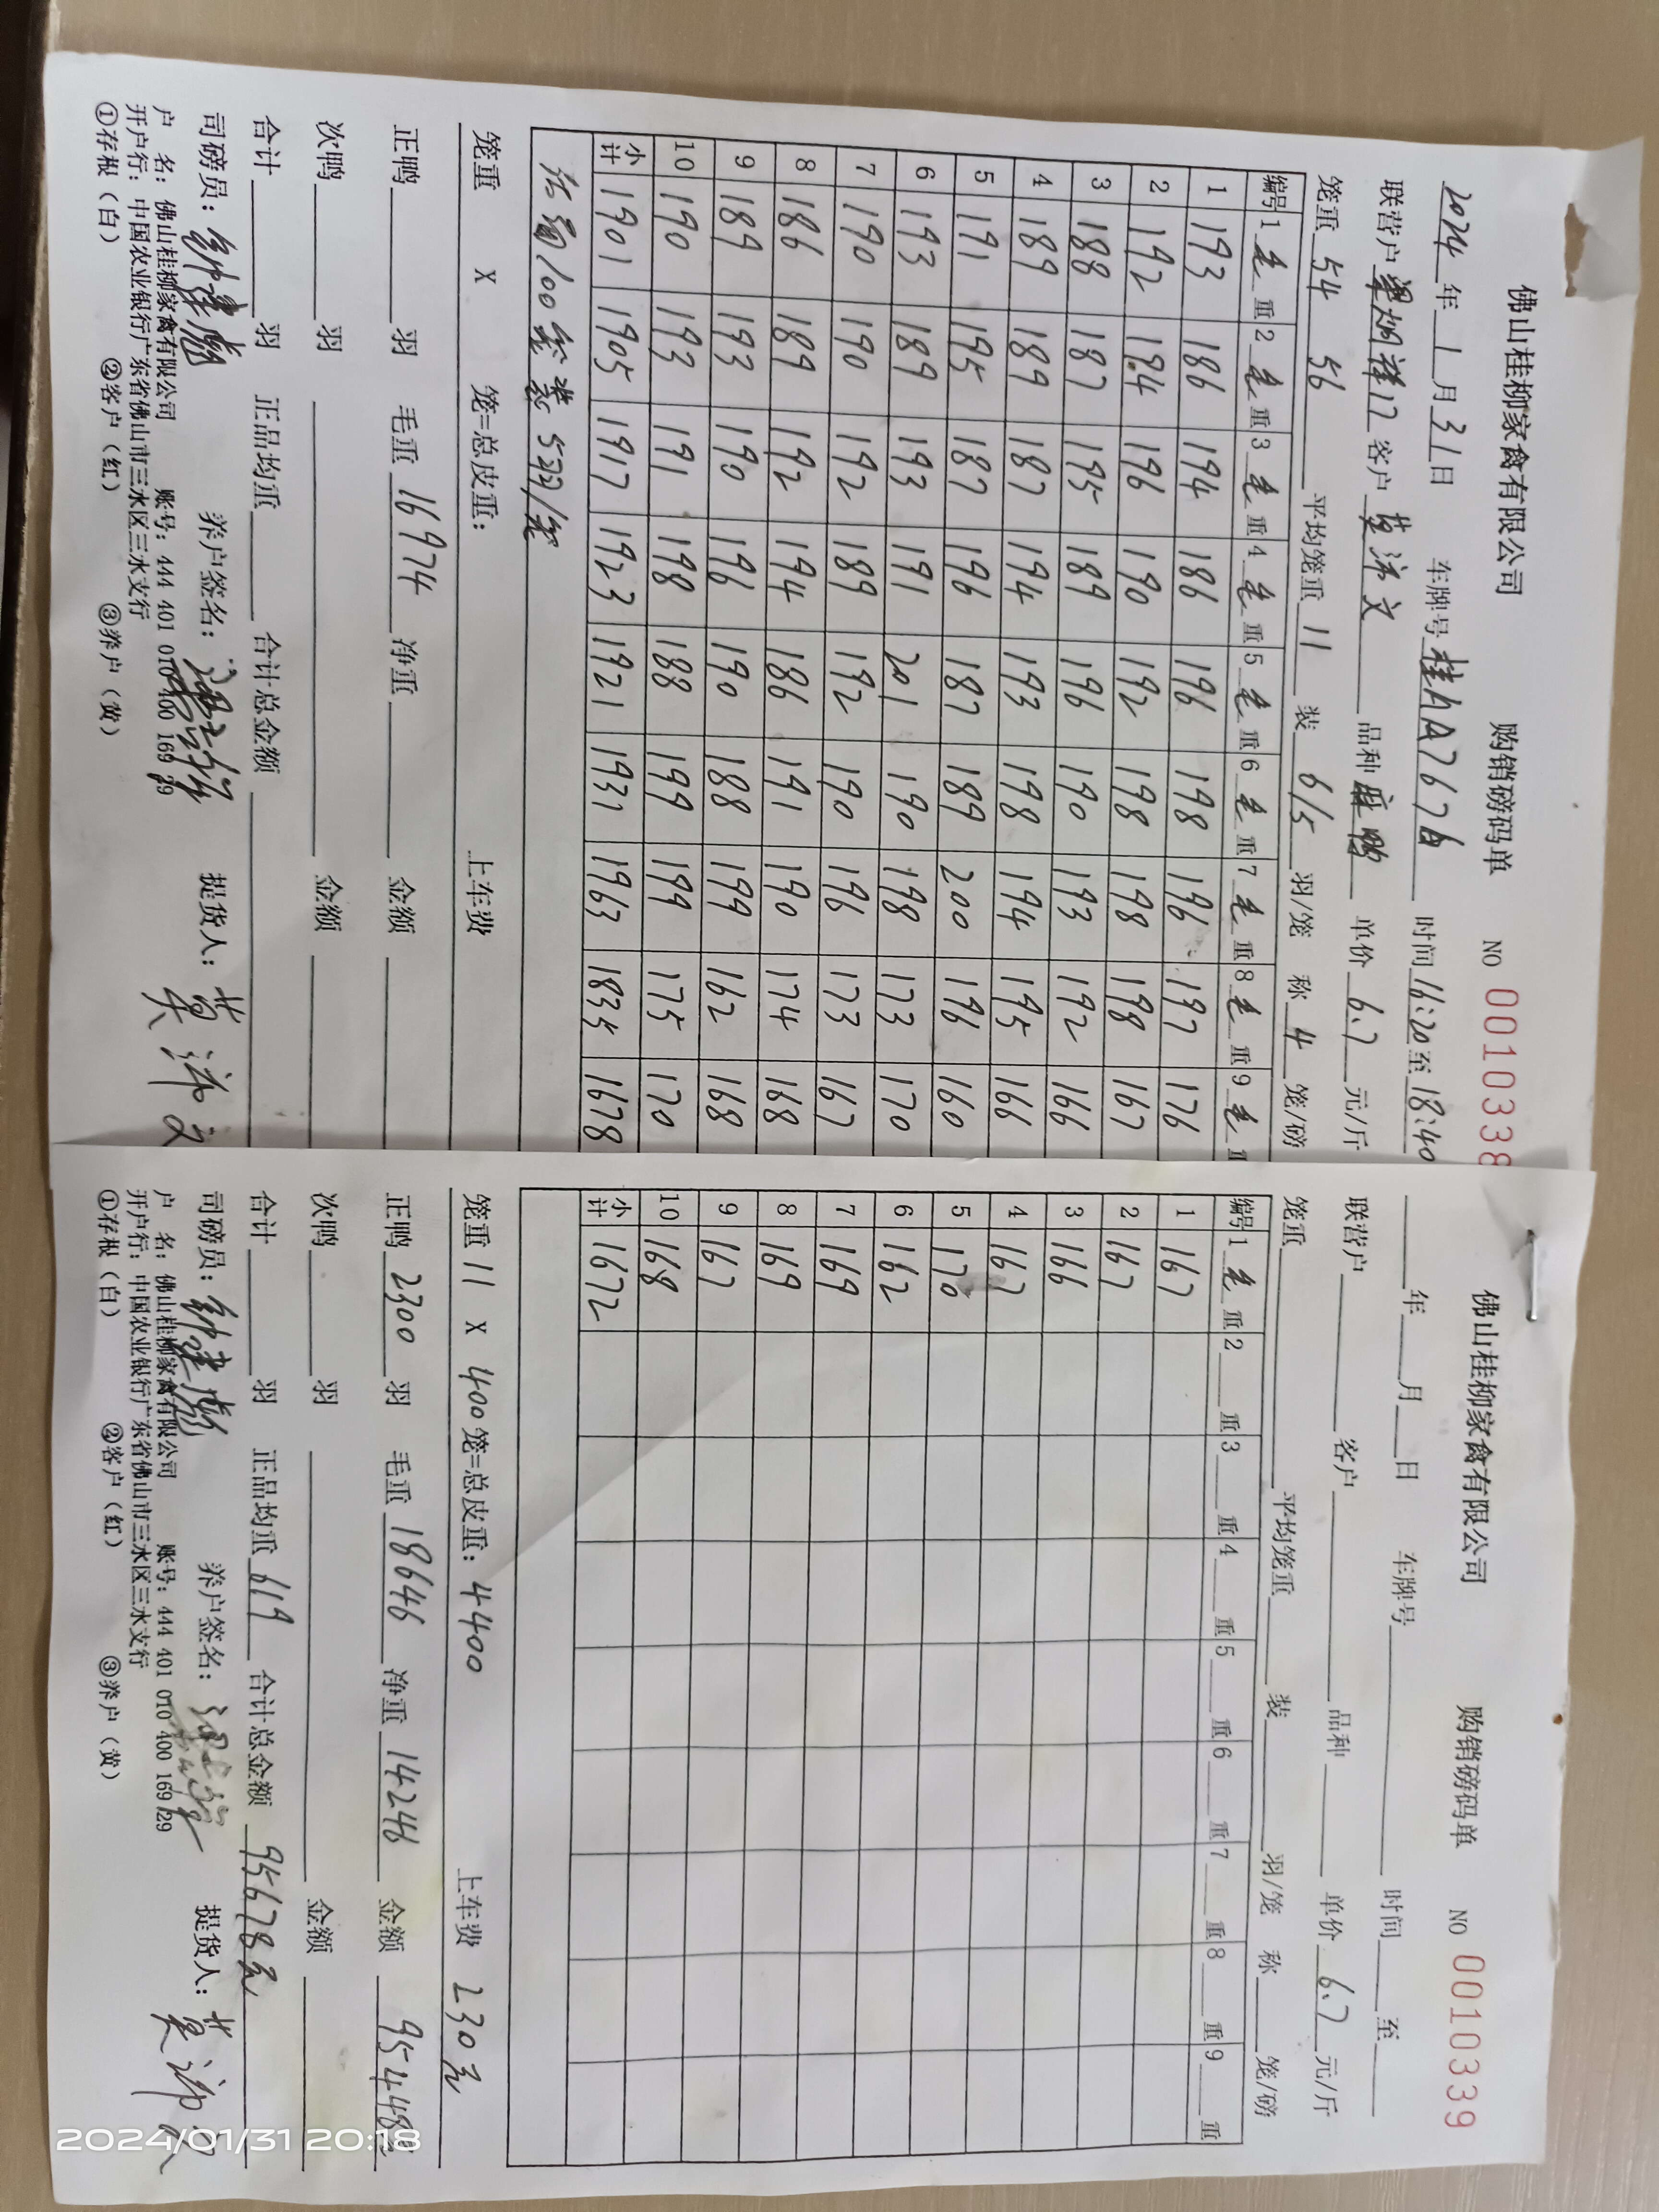 佛山桂柳家禽有限公司 购销磅码单 NO 0010338
2024年1月31日 车牌号 桂AA767 时间16:20至18:40
联营户 客户 黄沛文 品种 单价6.7元/斤
笼重54 56 平均笼重11 装6/5羽/笼 称4笼/磅
编号 1毛重 2毛重 3毛重 4毛重 5毛重 6毛重 7毛重 8毛重 9毛重
1 193 186 194 186 196 198 196 197 176
2 192 194 196 190 192 198 198 198 167
3 188 187 195 189 196 190 193 192 166
4 189 189 187 194 193 198 194 195 166
5 191 195 187 196 187 189 200 196 160
6 193 189 193 191 201 190 198 173 170
7 190 190 192 189 192 190 196 173 167
8 186 189 192 194 186 191 190 174 168
9 189 193 190 196 190 188 199 162 168
10 190 193 191 198 188 199 199 175 170
小计 1901 1905 1917 1923 1921 1931 1963 1835 1678
100 装5羽/笼
笼重 X 笼=总皮重: 上车费
正鸭 羽 毛重16974 净重 金额
次鸭 羽 金额
合计 羽 正品均重 合计总金额
司磅员: 养户签名: 提货人: 黄沛文
户 名: 佛山桂柳家禽有限公司 账号: 444 401 010 400 169 29
开户行: 中国农业银行广东省佛山市三水区三水支行
①存根(白) ②客户(红) ③养户(黄)
佛山桂柳家禽有限公司 购销磅码单 NO 0010339
年 月 日 车牌号 时间 至
联营户 客户 品种 单价6.7元/斤
笼重 平均笼重 装 羽/笼 称 笼/磅
编号 1毛重 2 重 3 重 4 重 5 重 6 重 7 重 8 重 9 重
1 167
2 167
3 166
4 167
5 170
6 162
7 169
8 169
9 167
10 168
小计 1672
笼重11 X 400笼=总皮重: 4400 上车费 230元
正鸭2300羽 毛重18646 净重14246 金额 95448
次鸭 羽 金额
合计 羽 正品均重619 合计总金额 95678元
司磅员: 养户签名: 提货人: 黄沛文
户 名: 佛山桂柳家禽有限公司 账号: 444 401 010 400 169 29
开户行: 中国农业银行广东省佛山市三水区三水支行
①存根(白) ②客户(红) ③养户(黄)
2024/01/31 20:18